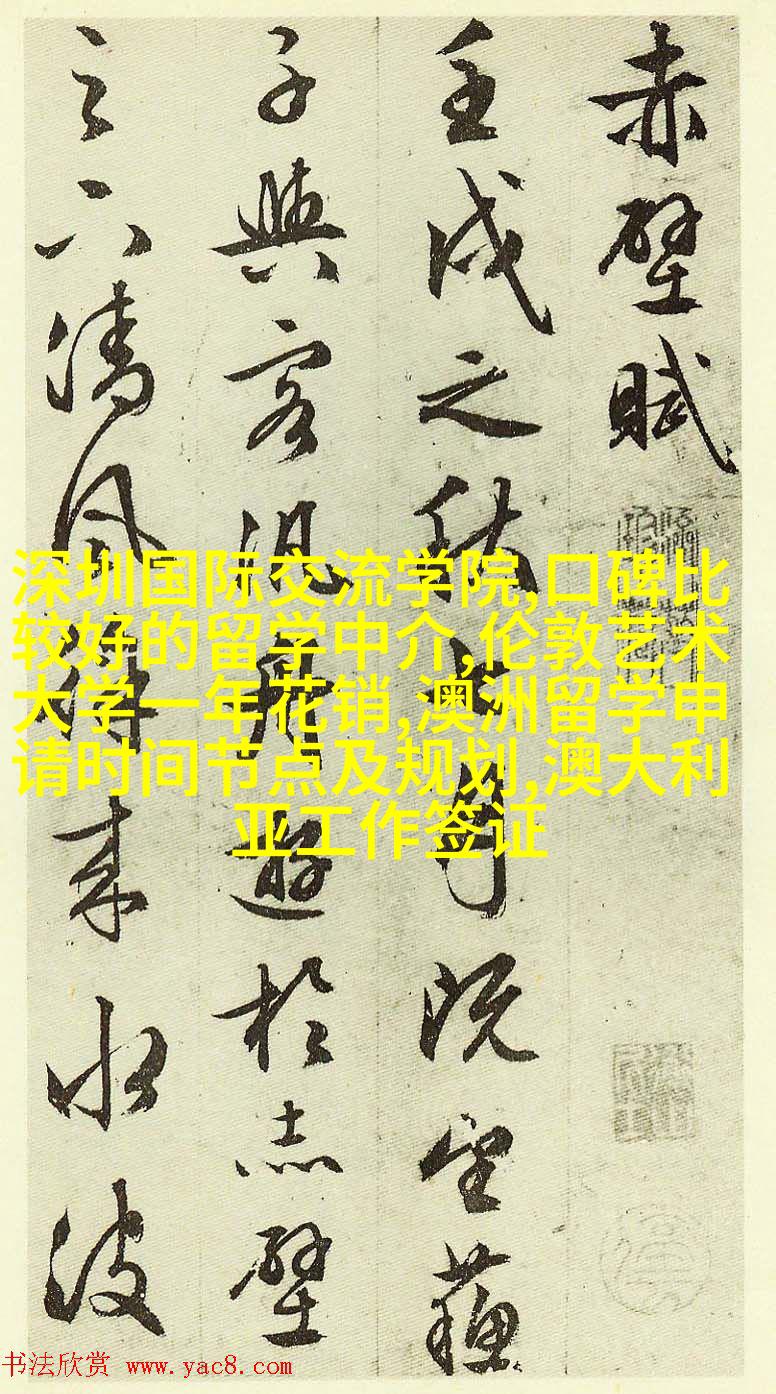 赤壁賦
壬戌之秋七月既望蘇
子與客汎舟遊於赤壁
之下清風徐來水波
深圳国际交流学院,口碑比
较好的留学中介,伦敦艺术
大学一年花销,澳洲留学申
请时间节点及规划,澳大利
亚工作签证
书法欣赏 www.yac8.com